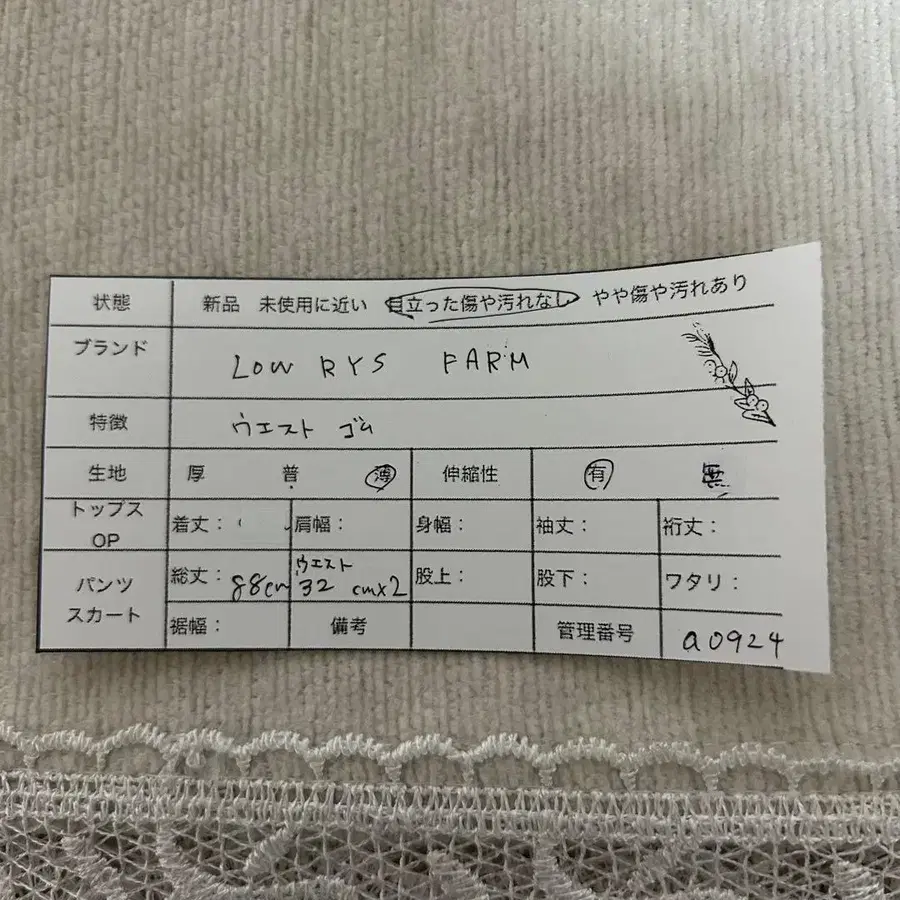 状態 新品 未使用に近い 目立った傷や汚れなし やや傷や汚れあり
ブランド LOW RYS FARM
特徴 ウエスト ゴム
生地 厚 普 薄 伸縮性 有 無
トップス OP 着丈: 肩幅: 身幅: 袖丈: 裄丈:
パンツ スカート 総丈: 88cm ウエスト 32 cm×2 股上: 股下: ワタリ:
裾幅: 備考 管理番号 a0924